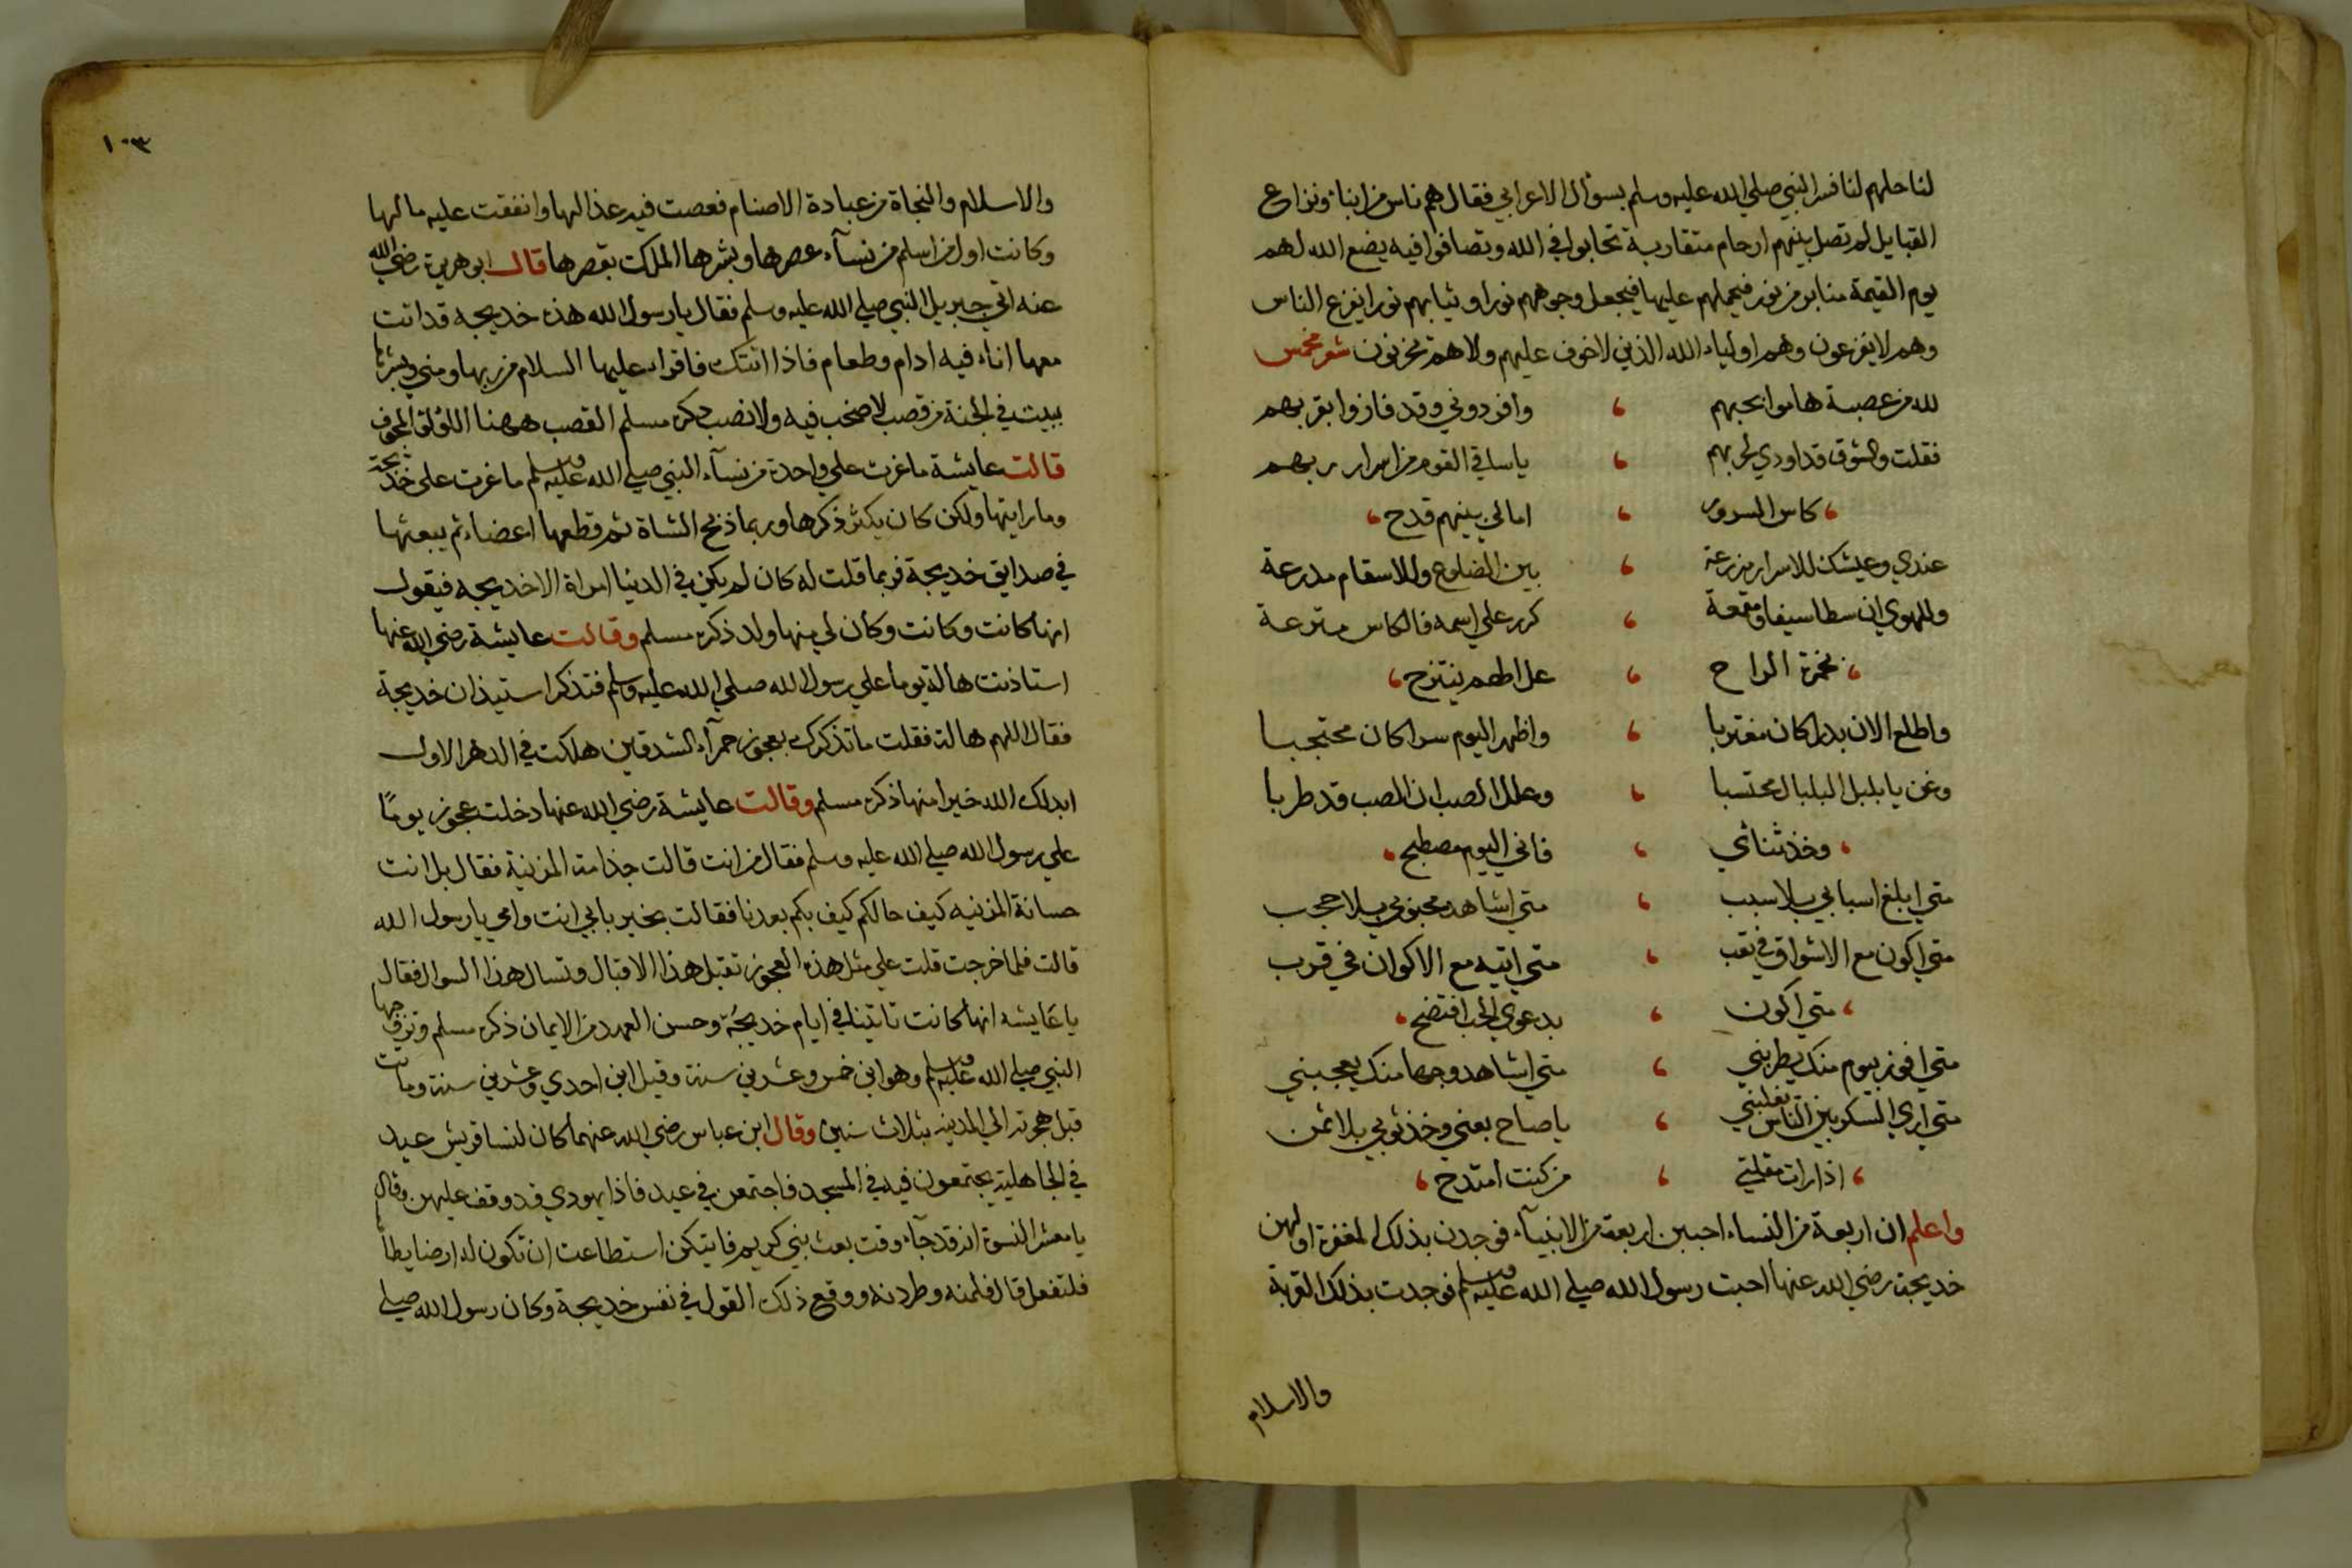 لنا حلهم لنا فسر النبي صلي الله عليه وسلم بسؤال الاعرابي فقال هم ناس من ابناء ونزاع
القبايل لم تصل بينهم ارحام متقاربة تحابوا في الله وتصافوا فيه يضع الله لهم
يوم القيمة منابر من نور فيجملهم عليها فيجعل وجوههم نورا وثيابهم نورا يفزع الناس
وهم لا يفزعون وهم اولياء الله الذين لا خوف عليهم ولا هم يحزنون شعر مخمس
لله من عصبة هاموا بحبهم ، وافردوني وقد فازوا بقربهم
فقلت والشوق قد اودي لحربهم ، ياساقي القوم من اسرار ربهم
، كاس السرور ، امالي بينهم قدح ،
عندي وعيشك للاسرار مزرعة ، بين الضلوع وللاسقام مدرعة
وللهوي ان سطا سيفا ومقمعة ، كرر علي اسمه فالكاس مترعة
، بخمرة الراح ، عل الهم ينتزح ،
واطلع الان بدرا كان مغتربا ، واظهر اليوم سرا كان محتجبا
وغن يا بلبل البلبال محتسبا ، وعلل الصب ان الصب قد طربا
، وخذ ثنائي ، فاني اليوم مصطبح ،
متي ابلغ اسبابي بلا سبب ، متي اشاهد محبوبي بلا حجب
متي اكون مع الاشواق في تعب ، متي اتيه مع الاكوان في قرب
، متي اكون ، بدعوي الحب افتضح ،
متي افوز بيوم منك يطربني ، متي اشاهد وجها منك يعجبني
متي اري السكر بين الناس يغلبني ، ياصاح بعني وخذ ثوبي بلا ثمن
، اذا رات مقلتي ، من كنت امتدح ،
واعلم ان اربعة من النساء احببن اربعة من الانبيآء فوجدن بذلك المغفرة اولهن
خديجة رضي الله عنها احبت رسول الله صلي الله عليه وسلم فوجدت بذلك القربة
والاسلام
١٠٣
والاسلام والنجاة من عبادة الاصنام فعصت فيه عذالها وانفقت عليه مالها
وكانت اول من اسلم من نسآء عصرها وبشرها الملك بقصرها قال ابو هريرة رضي الله
عنه اتي جبريل النبي صلي الله عليه وسلم فقال يا رسول الله هذه خديجه قد اتت
معها اناء فيه ادام وطعام فاذا اتتك فاقراء عليها السلام من ربها ومني وبشرها
ببيت في الجنة من قصب لا صخب فيه ولا نصب ذكره مسلم القصب ههنا اللؤلؤ المجوف
قالت عايشة ما غرت علي واحدة من نسآء النبي صلي الله عليه وسلم ما غرت علي خديجة
وما رايتها ولكن كان يكثر ذكرها وربما ذبح الشاة ثم قطعها اعضاء ثم يبعثها
في صدايق خديجة فربما قلت له كان لم يكن في الدنيا امراة الا خديجه فيقول
انها كانت وكانت وكان لي منها ولد ذكره مسلم وقالت عايشة رضي الله عنها
استاذنت هالة يوما علي رسول الله صلي الله عليه وسلم فتذكر استيذان خديجة
فقال اللهم هالة فقلت ما تذكرك بعجوز حمرآء الشدقين هلكت في الدهر الاول
ابدلك الله خيرا منها ذكره مسلم وقالت عايشة رضي الله عنها دخلت عجوز يومًا
علي رسول الله صلي الله عليه وسلم فقال من انت قالت جذامة المزنية فقال بل انت
حسانة المزنيه كيف حالكم كيف بكم بعدنا فقالت بخير بابي انت وامي يا رسول الله
قالت فلما خرجت قلت علي مثل هذه العجوز تقبل هذا الاقبال وتسال هذا السوال فقال
يا عايشه انها كانت تاتينا في ايام خديجة وحسن العهد من الايمان ذكره مسلم وتزوجها
النبي صلي الله عليه وسلم وهو ابن خمس وعشرين سنة وقيل ابن احدي وعشرين سنة وماتت
قبل هجرته الي المدينه بثلاث سنين وقال ابن عباس رضي الله عنهما كان لنسا قريش عيد
في الجاهلية يجتمعون فيه في المسجد فاجتمعن في عيد فاذا يهودي قد وقف عليهن وقال
يا معشر النسوة انه قد جآء وقت بعث نبي كريم فايتكن استطاعت ان تكون له ارضا يطأها
فلتفعل قال فلمنه وطردنه ووقع ذلك القول في نفس خديجة وكان رسول الله صلي